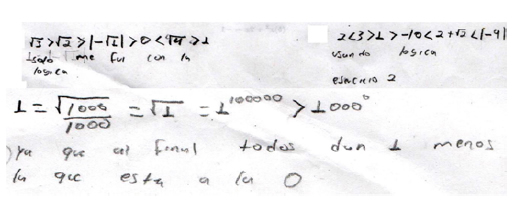 √3 > √2 > |-√2| > 0 < √4 > 1
solo me fui con la
logica
2 < 3 > 1 > -10 < 2 + √2 < |-9|
usando logica
ejercicio 2
1 = √1000/1000 = √1 = 1^100000 > 1000^0
ya que al final todos dan 1 menos
la que esta a la 0